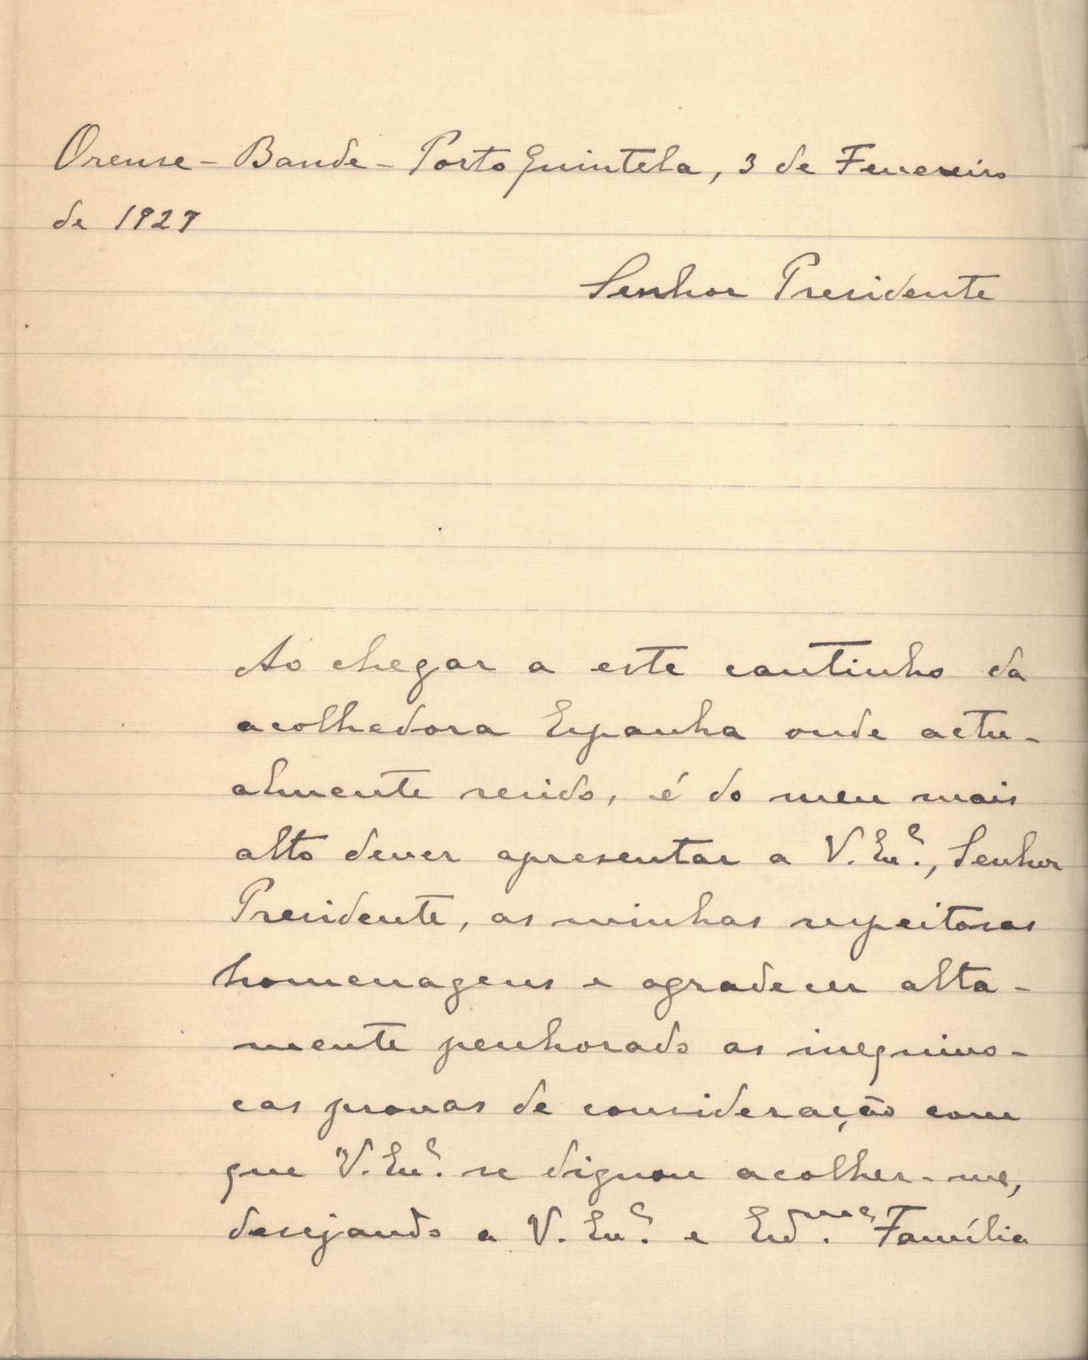 Orense - Bande - Porto Quintela, 3 de Fevereiro
de 1927
Senhor Presidente
Ao chegar a este cantinho da
acolhedora Espanha onde actu-
almente resido, é do meu mais
alto dever apresentar a V. Exª., Senhor
Presidente, as minhas respeitosas
homenagens e agradecer alta-
mente penhorado as inequivo-
cas provas de consideração com
que V. Exª. se dignou acolher-me,
desejando a V. Exª. e Família